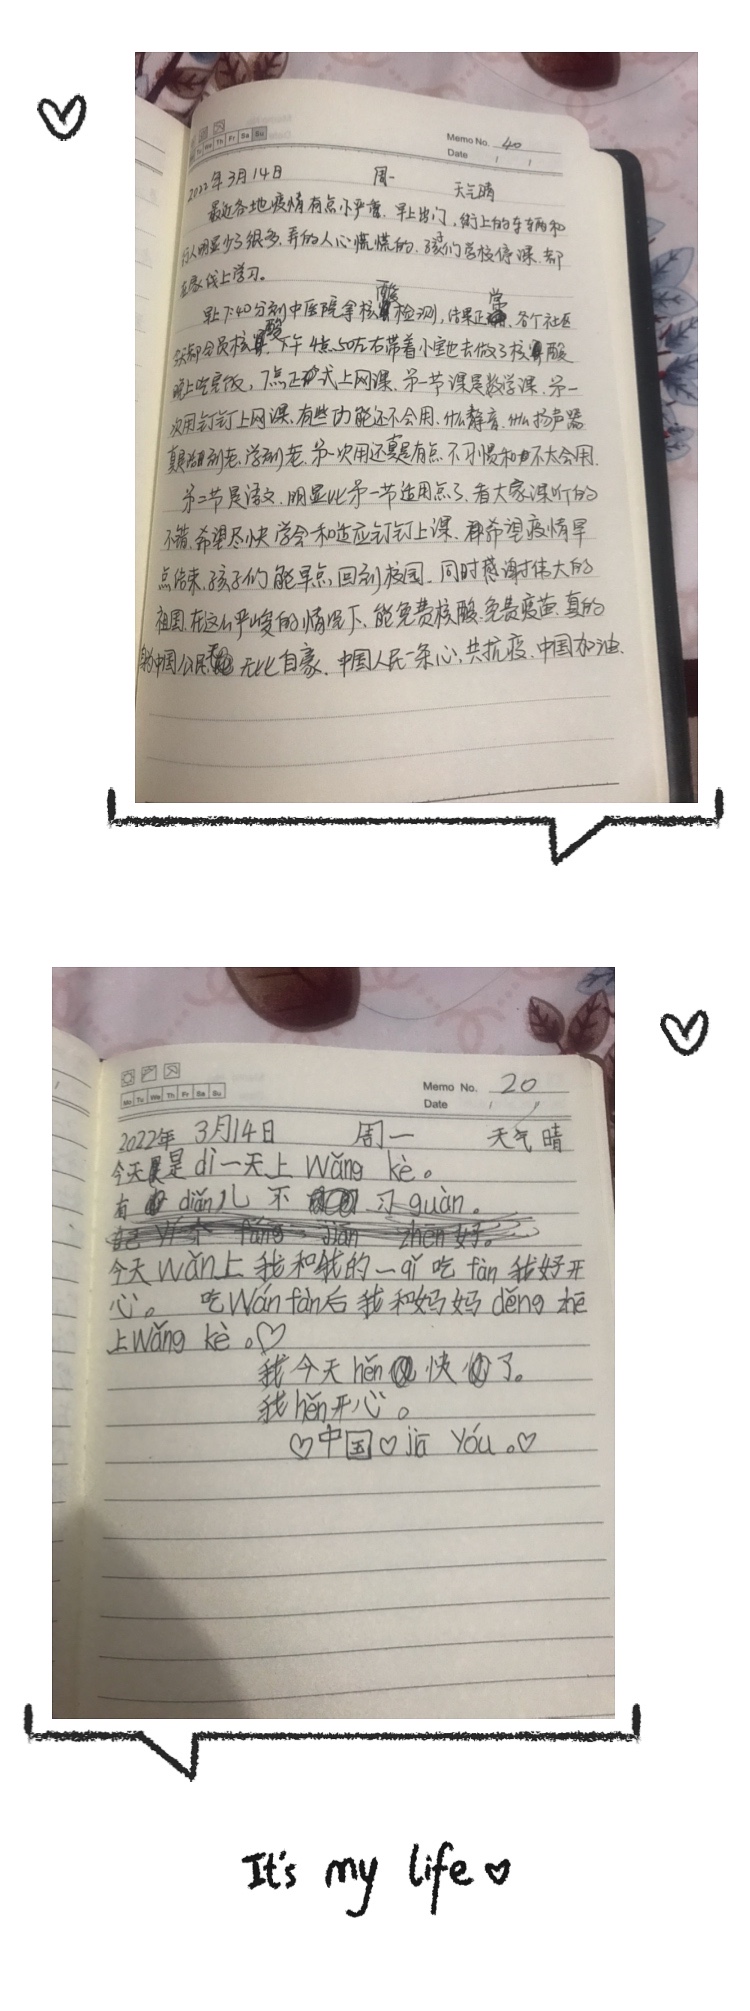 Tu We Th Fr Sa Su
Memo No. 40
Date / /
2022年3月14日 周一 天气晴
最近各地疫情有点小严重、早上出门,街上的车辆和
行人明显少了很多、弄的人心慌慌的、孩子们学校停课、都
在家线上学习。
早上7:40分到中医院拿核酸检测,结果正常、各个社区
今天都全员核酸、下午4点50左右带着小宝也去做了核酸
晚上吃完饭,7点正式上网课、第一节课是数学课、第一
次用钉钉上网课、有些功能还不会用、什么静音、什么扬声器
真是活到老、学到老、第一次用还真是有点不习惯和不太会用、
第二节是语文、明显比第一节适用点了、看大家课听的
不错、希望尽快学会和适应钉钉上课、希望疫情早
点结束、孩子们能早点回到校园、同时感谢伟大的
祖国、在这么严峻的情况下、能免费核酸、免费疫苗、真的
身为中国公民无比自豪、中国人民一条心、共抗疫、中国加油、
Mo Tu We Th Fr Sa Su
Memo No. 20
Date / /
2022年 3月14日 周一 天气晴
今天是dì一天上wǎng kè。
有diǎn儿不习guàn。
今天wǎn上我和我的一qǐ吃fàn我好开
心。 吃wǎn fàn后我和妈妈děng zhē
上wǎng kè。♡
我今天hěn快了。
我hěn开心。
♡中国♡jiā yóu。♡
It's my life♡